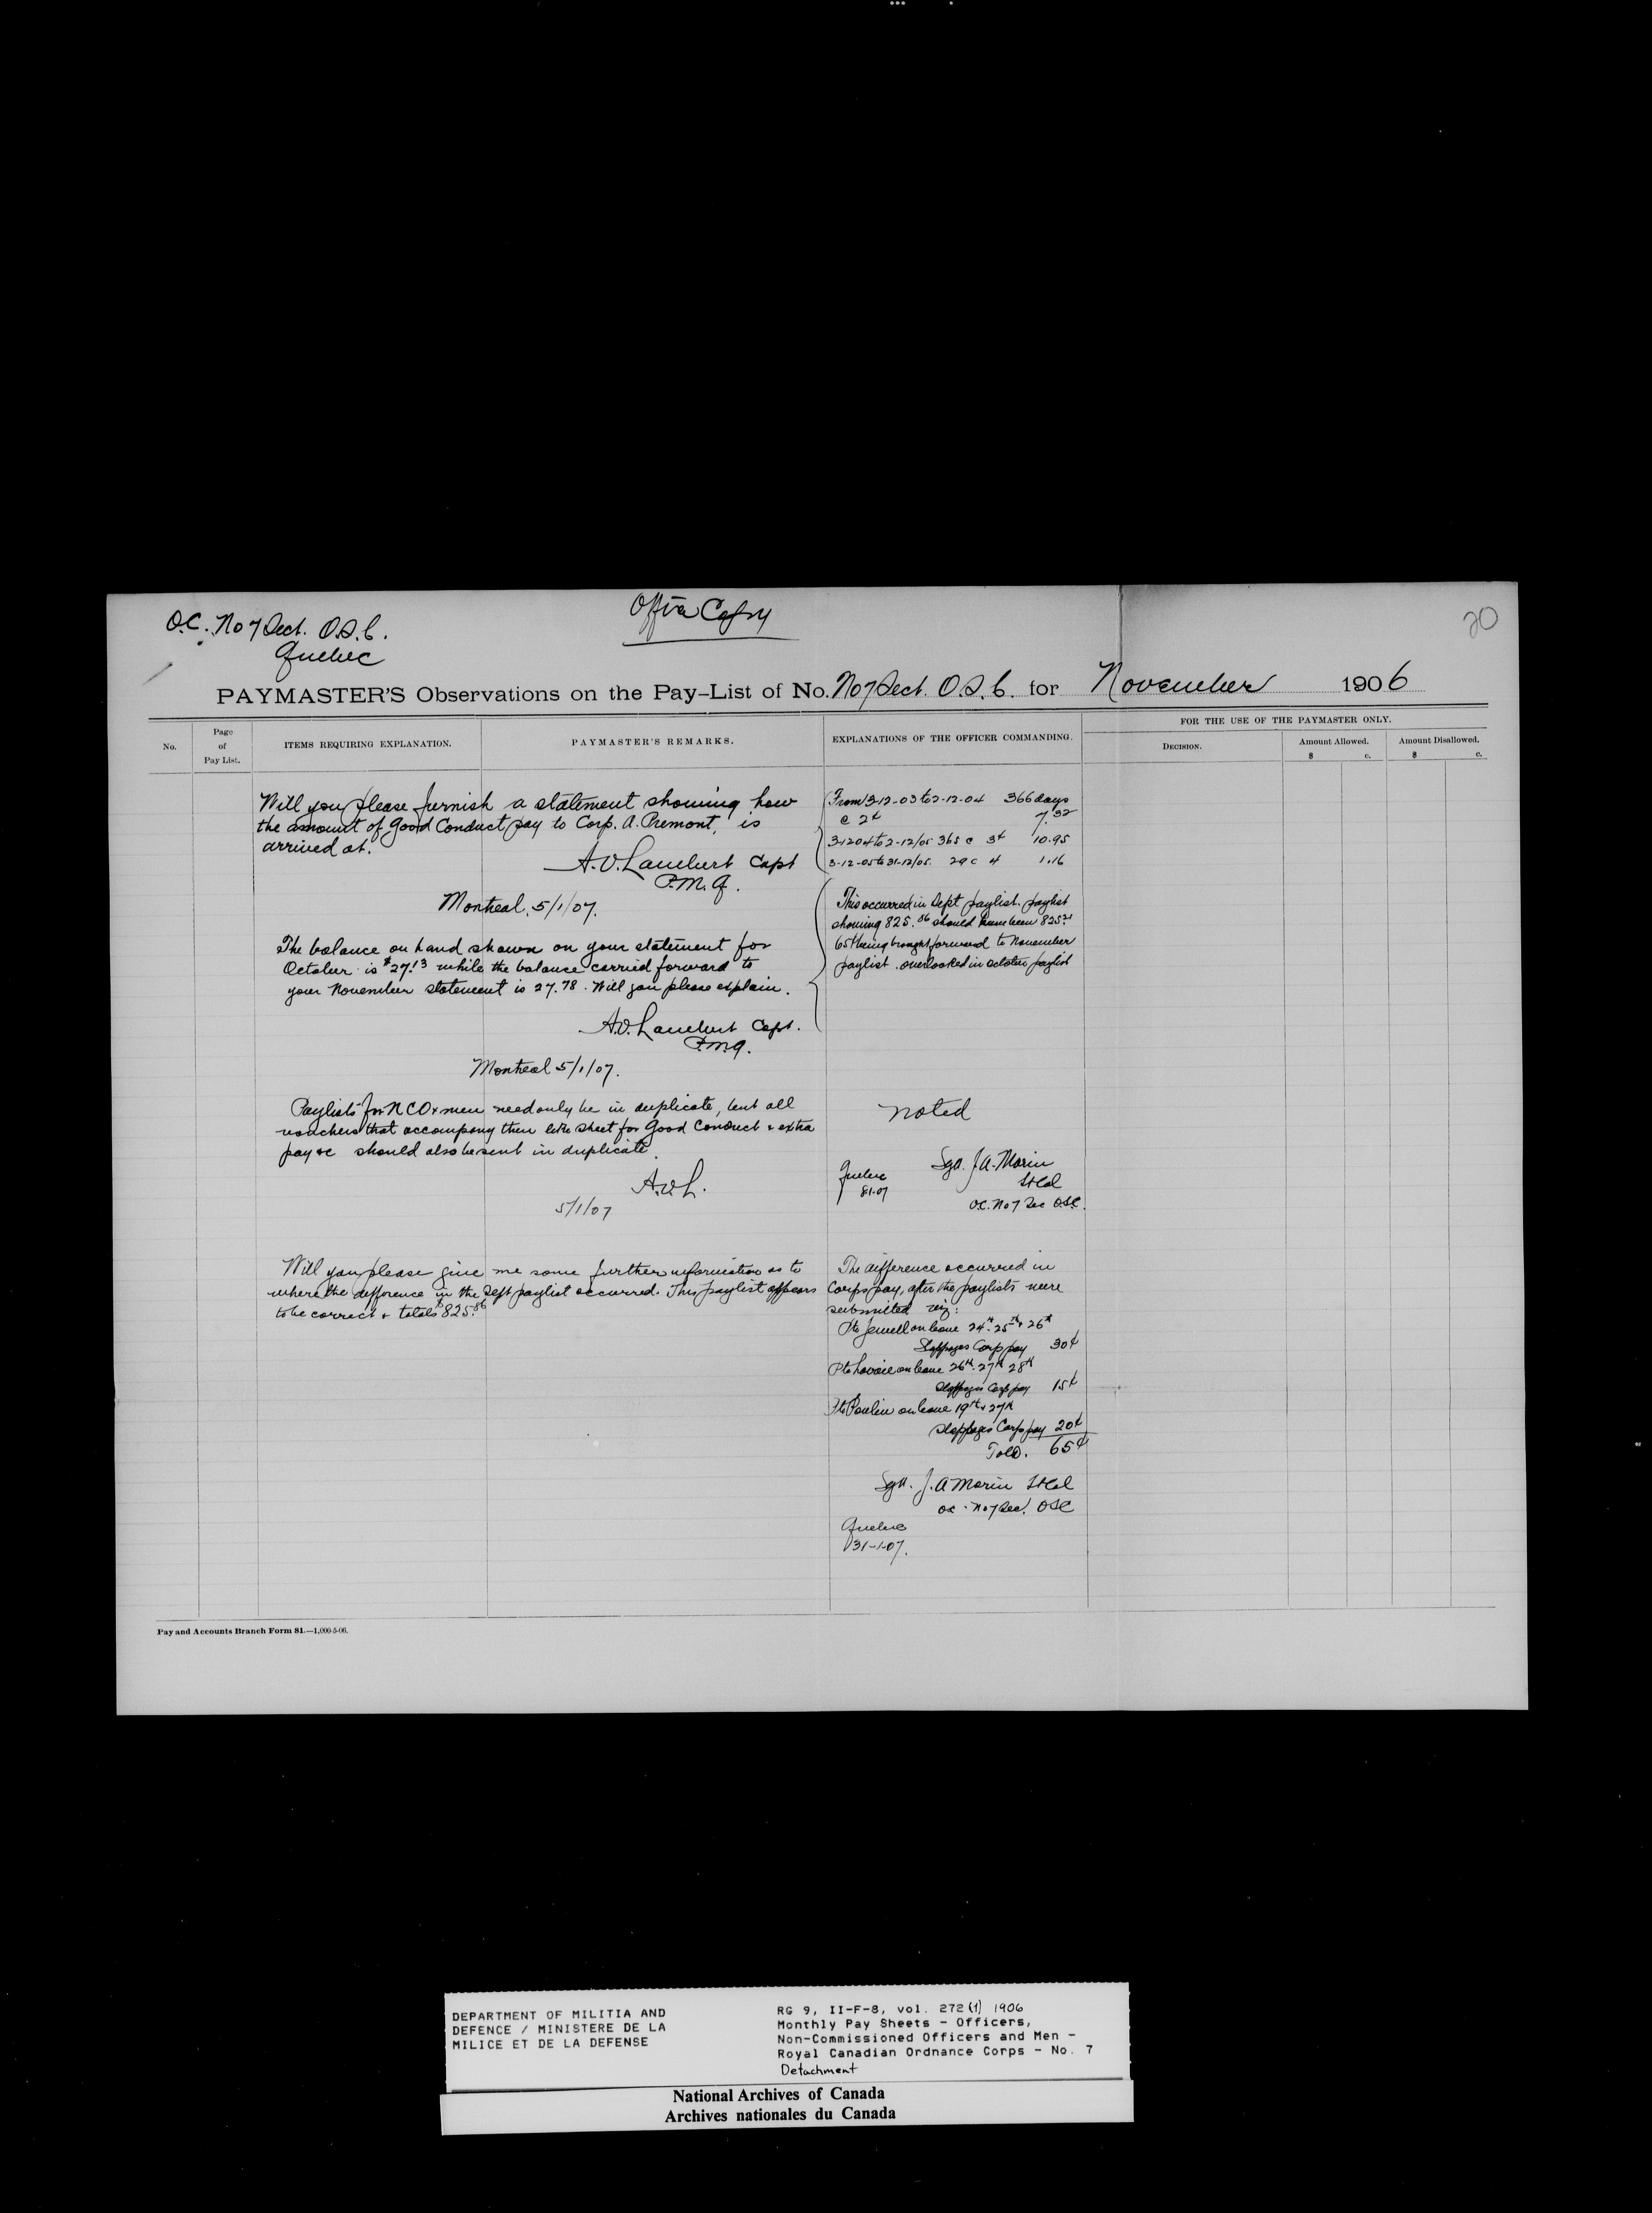 O.C. No 7 Sect. O.S.C.
Quebec
Office Copy
20
PAYMASTER'S Observations on the Pay-List of No. No 7 Sect. O.S.C. for November 1906
No.
Page of Pay List.
ITEMS REQUIRING EXPLANATION.
PAYMASTER'S REMARKS.
EXPLANATIONS OF THE OFFICER COMMANDING.
FOR THE USE OF THE PAYMASTER ONLY.
DECISION.
Amount Allowed.
$ c.
Amount Disallowed.
$ c.
Will you please furnish a statement showing how
the amount of Good Conduct pay to Corp. A. Premont, is
arrived at.
A.O. Lambert Capt
P.M.
Montreal, 5/1/07.
From 3-12-03 to 2-12-04 366 days
@ 2¢ 7.32
3-12 04 to 2-12/05 365 @ 3¢ 10.95
3-12-05 to 31-12/05. 29 @ 4 1.16
The balance on hand shown on your statement for
October is $27.13 while the balance carried forward to
your November statement is 27.78. Will you please explain.
A.O. Lambert Capt.
P.M.
Montreal 5/1/07.
This occurred in Sept paylist. paylist
showing 825.86 should have been 825.21
65¢ being brought forward to November
paylist. overlooked in october paylist
Paylists for NCO & men need only be in duplicate, but all
vouchers that accompany them like sheet for Good Conduct & extra
pay &c should also be sent in duplicate.
A.O.L.
5/1/07
noted
Sgd. J.A. Morin
Lt Col
O.C. No 7 Sec O.S.C.
Quebec
8-1-07
Will you please give me some further information as to
where the difference in the Sept paylist occurred. This paylist appears
to be correct & totals $825.86
The difference occurred in
Corps pay, after the paylists were
submitted viz:
Pte Jewell on leave 24th. 25th & 26th
Stoppages Corp pay 30¢
Pte Lavoie on leave 26th. 27th 28th
Stoppages Corp pay 15¢
Pte Poulin on leave 19th & 27th
Stoppages Corps pay 20¢
65¢
Sgd. J. A Morin Lt Col
OC. No 7 Sec. OSC
Quebec
31-1-07.
Pay and Accounts Branch Form 81.—1,000-5-06.
DEPARTMENT OF MILITIA AND
DEFENCE / MINISTERE DE LA
MILICE ET DE LA DEFENSE
RG 9, II-F-8, vol. 272 (1) 1906
Monthly Pay Sheets - Officers,
Non-Commissioned Officers and Men -
Royal Canadian Ordnance Corps - No. 7
Detachment
National Archives of Canada
Archives nationales du Canada